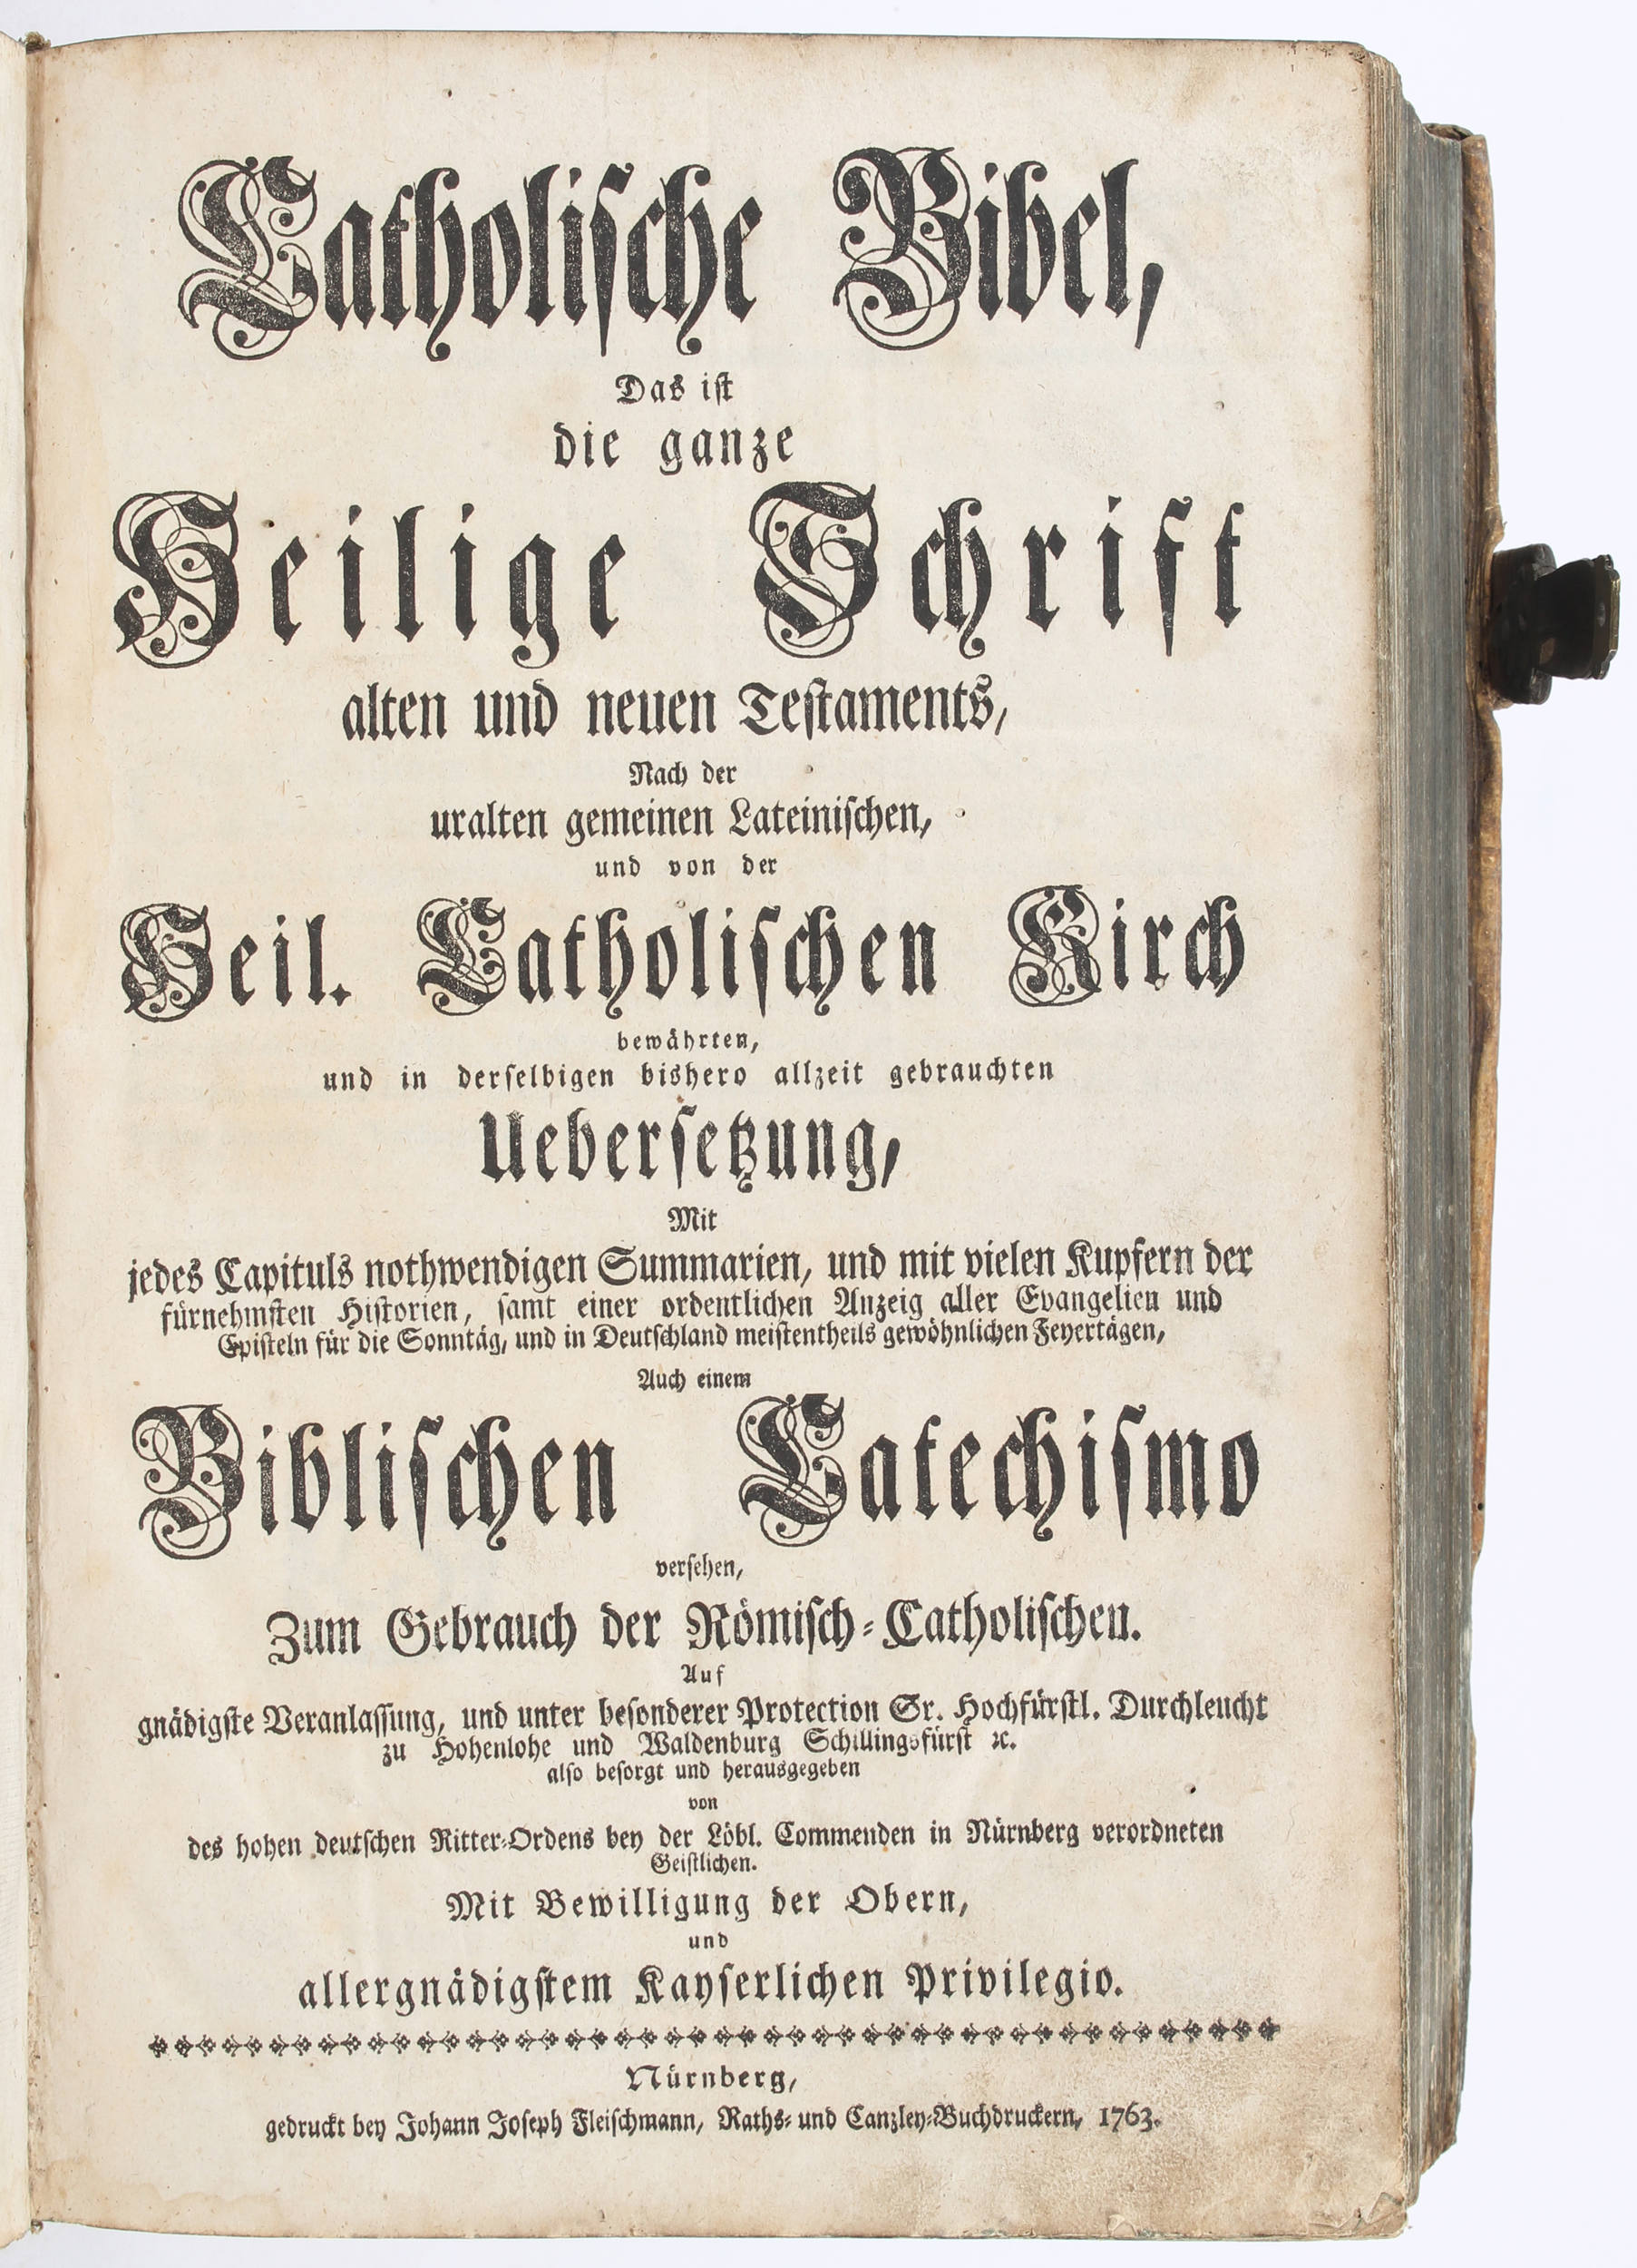 Catholische Bibel,
Das ist
die ganze
Heilige Schrift
alten und neuen Testaments,
Nach der
uralten gemeinen Lateinischen,
und von der
Heil. Catholischen Kirch
bewährten,
und in derselbigen bishero allzeit gebrauchten
Uebersetzung,
Mit
jedes Capituls nothwendigen Summarien, und mit vielen Kupfern der
fürnehmsten Historien, samt einer ordentlichen Anzeig aller Evangelien und
Episteln für die Sonntäg, und in Deutschland meistentheils gewöhnlichen Feyertägen,
Auch einem
Biblischen Catechismo
versehen,
Zum Gebrauch der Römisch-Catholischen.
Auf
gnädigste Veranlassung, und unter besonderer Protection Sr. Hochfürstl. Durchleucht
zu Hohenlohe und Waldenburg Schillingsfürst ꝛc.
also besorgt und herausgegeben
von
des hohen deutschen Ritter-Ordens bey der Löbl. Commenden in Nürnberg verordneten
Geistlichen.
Mit Bewilligung der Obern,
und
allergnädigstem Kayserlichen Privilegio.
Nürnberg,
gedruckt bey Johann Joseph Fleischmann, Raths- und Canzley-Buchdruckern, 1763.